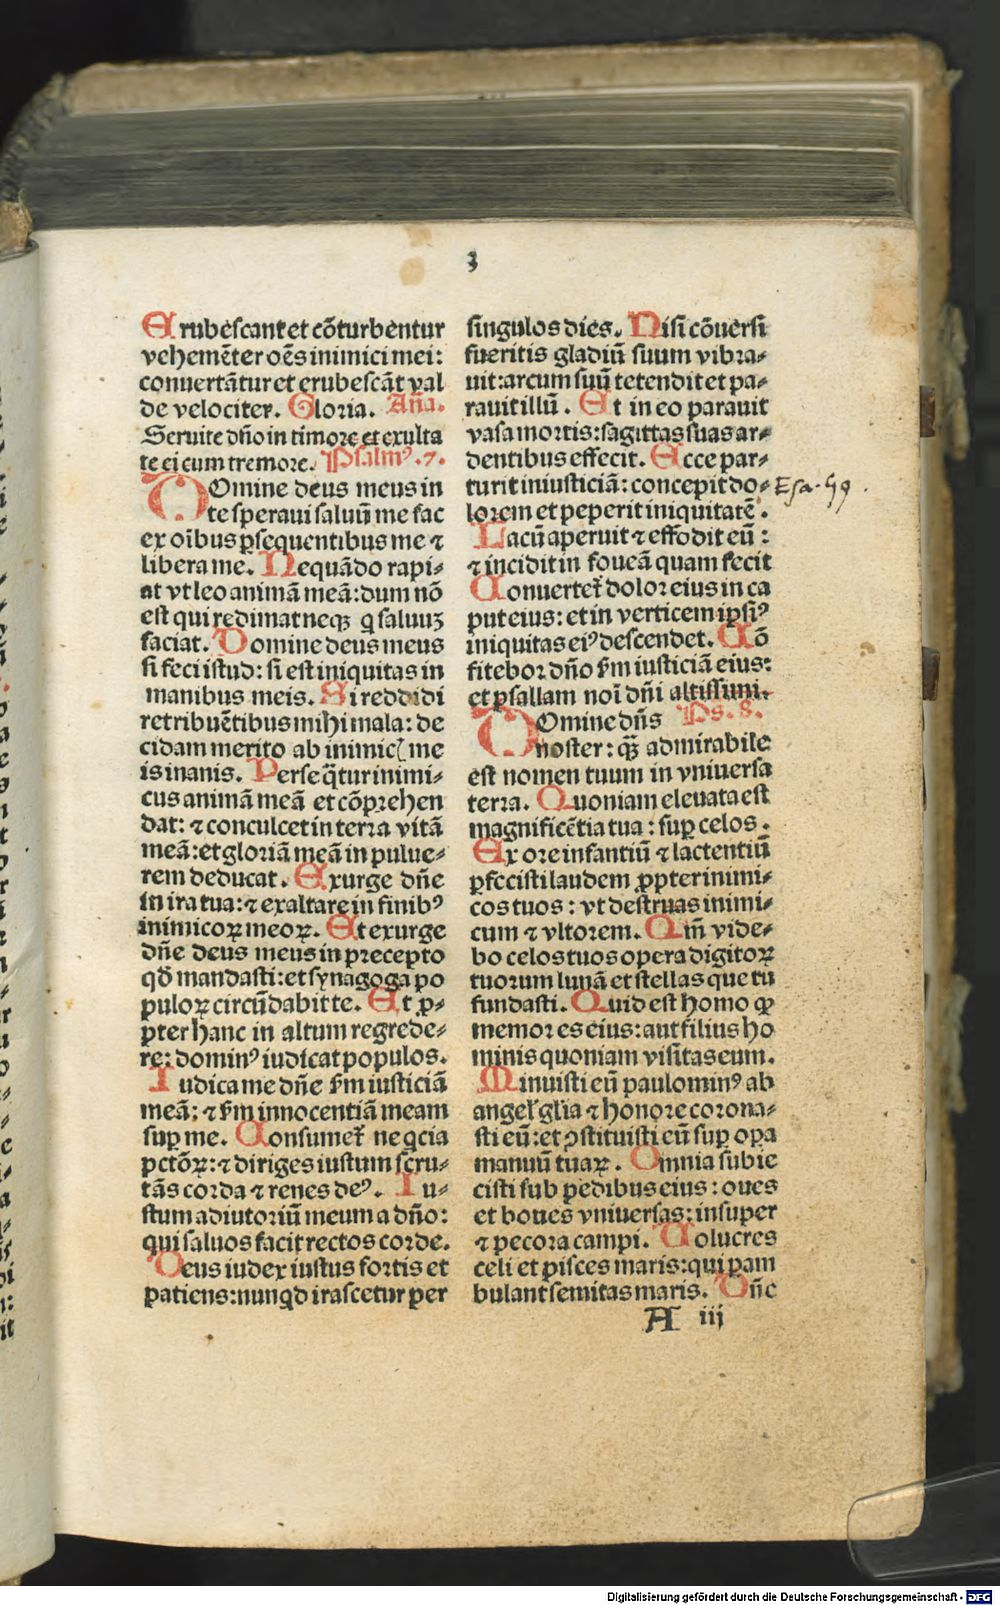 3
Erubescant et cōturbentur
vehemēter oēs inimici mei:
conuertātur et erubescāt val
de velociter. Gloria. Añа.
Seruite dño in timore et exulta
te ei cum tremore. Psalmꝰ .7.
DOmine deus meus in
te speraui saluū me fac
ex oībus ꝑsequentibus me ⁊
libera me. Nequādo rapi⸗
at vt leo animā meā: dum nō
est qui redimat neqꝫ q̇ saluuꝫ
faciat. Domine deus meus
si feci istud: si est iniquitas in
manibus meis. Si reddidi
retribuētibus mihi mala: de
cidam merito ab inimicꝭ me
is inanis. Perseq̄tur inimi⸗
cus animā meā et cōprehen
dat: ⁊ conculcet in terra vitā
meā: et gloriā meā in pulue⸗
rem deducat. Exurge dñe
in ira tua: ⁊ exaltare in finibꝰ
inimicoꝝ meoꝝ. Et exurge
dñe deus meus in precepto
qd̄ mandasti: et synagoga po
puloꝝ circūdabit te. Et ꝓ⸗
pter hanc in altum regrede⸗
re: dominꝰ iudicat populos.
Iudica me dñe ẜm iusticiā
meā: ⁊ ẜm innocentiā meam
suꝑ me. Consumet᷑ neq̇cia
pctōꝝ: ⁊ diriges iustum scru⸗
tās corda ⁊ renes deꝰ. Iu⸗
stum adiutoriū meum a dño:
qui saluos facit rectos corde.
Deus iudex iustus fortis et
patiens: nunqd irascetur per
singulos dies. Nisi cōuersi
fueritis gladiū suum vibra⸗
uit: arcum suū tetendit et pa⸗
rauit illū. Et in eo parauit
vasa mortis: sagittas suas ar⸗
dentibus effecit. Ecce par⸗
turit iniusticiā: concepit do⸗
Esa. 59.
lorem et peperit iniquitatē.
Lacū aperuit ⁊ effodit eū:
⁊ incidit in foueā quam fecit
Conuertet᷑ dolor eius in ca
put eius: et in verticem ipsiꝰ
iniquitas eiꝰ descendet. Cō
fitebor dño ẜm iusticiā eius:
et psallam noī dñi altissimi.
DOmine dñs Ps. 8.
noster: qꝫ admirabile
est nomen tuum in vniuersa
terra. Quoniam eleuata est
magnificētia tua: suꝑ celos.
Ex ore infantiū ⁊ lactentiū
ꝑfecisti laudem ꝓpter inimi⸗
cos tuos: vt destruas inimi⸗
cum ⁊ vltorem. Qm̄ vide⸗
bo celos tuos opera digitoꝝ
tuorum lunā et stellas que tu
fundasti. Quid est homo ꝙ
memor es eius: aut filius ho
minis quoniam visitas eum.
Minuisti eū paulominꝰ ab
angel᷑ gl̄ia ⁊ honore corona⸗
sti eū: et ꝯstituisti eū suꝑ oꝑa
manuū tuaꝝ. Omnia subie
cisti sub pedibus eius: oues
et boues vniuersas: insuper
⁊ pecora campi. Uolucres
celi et pisces maris: qui pam
bulant semitas maris. Dñe
A iij
Digitalisierung gefördert durch die Deutsche Forschungsgemeinschaft - DFG